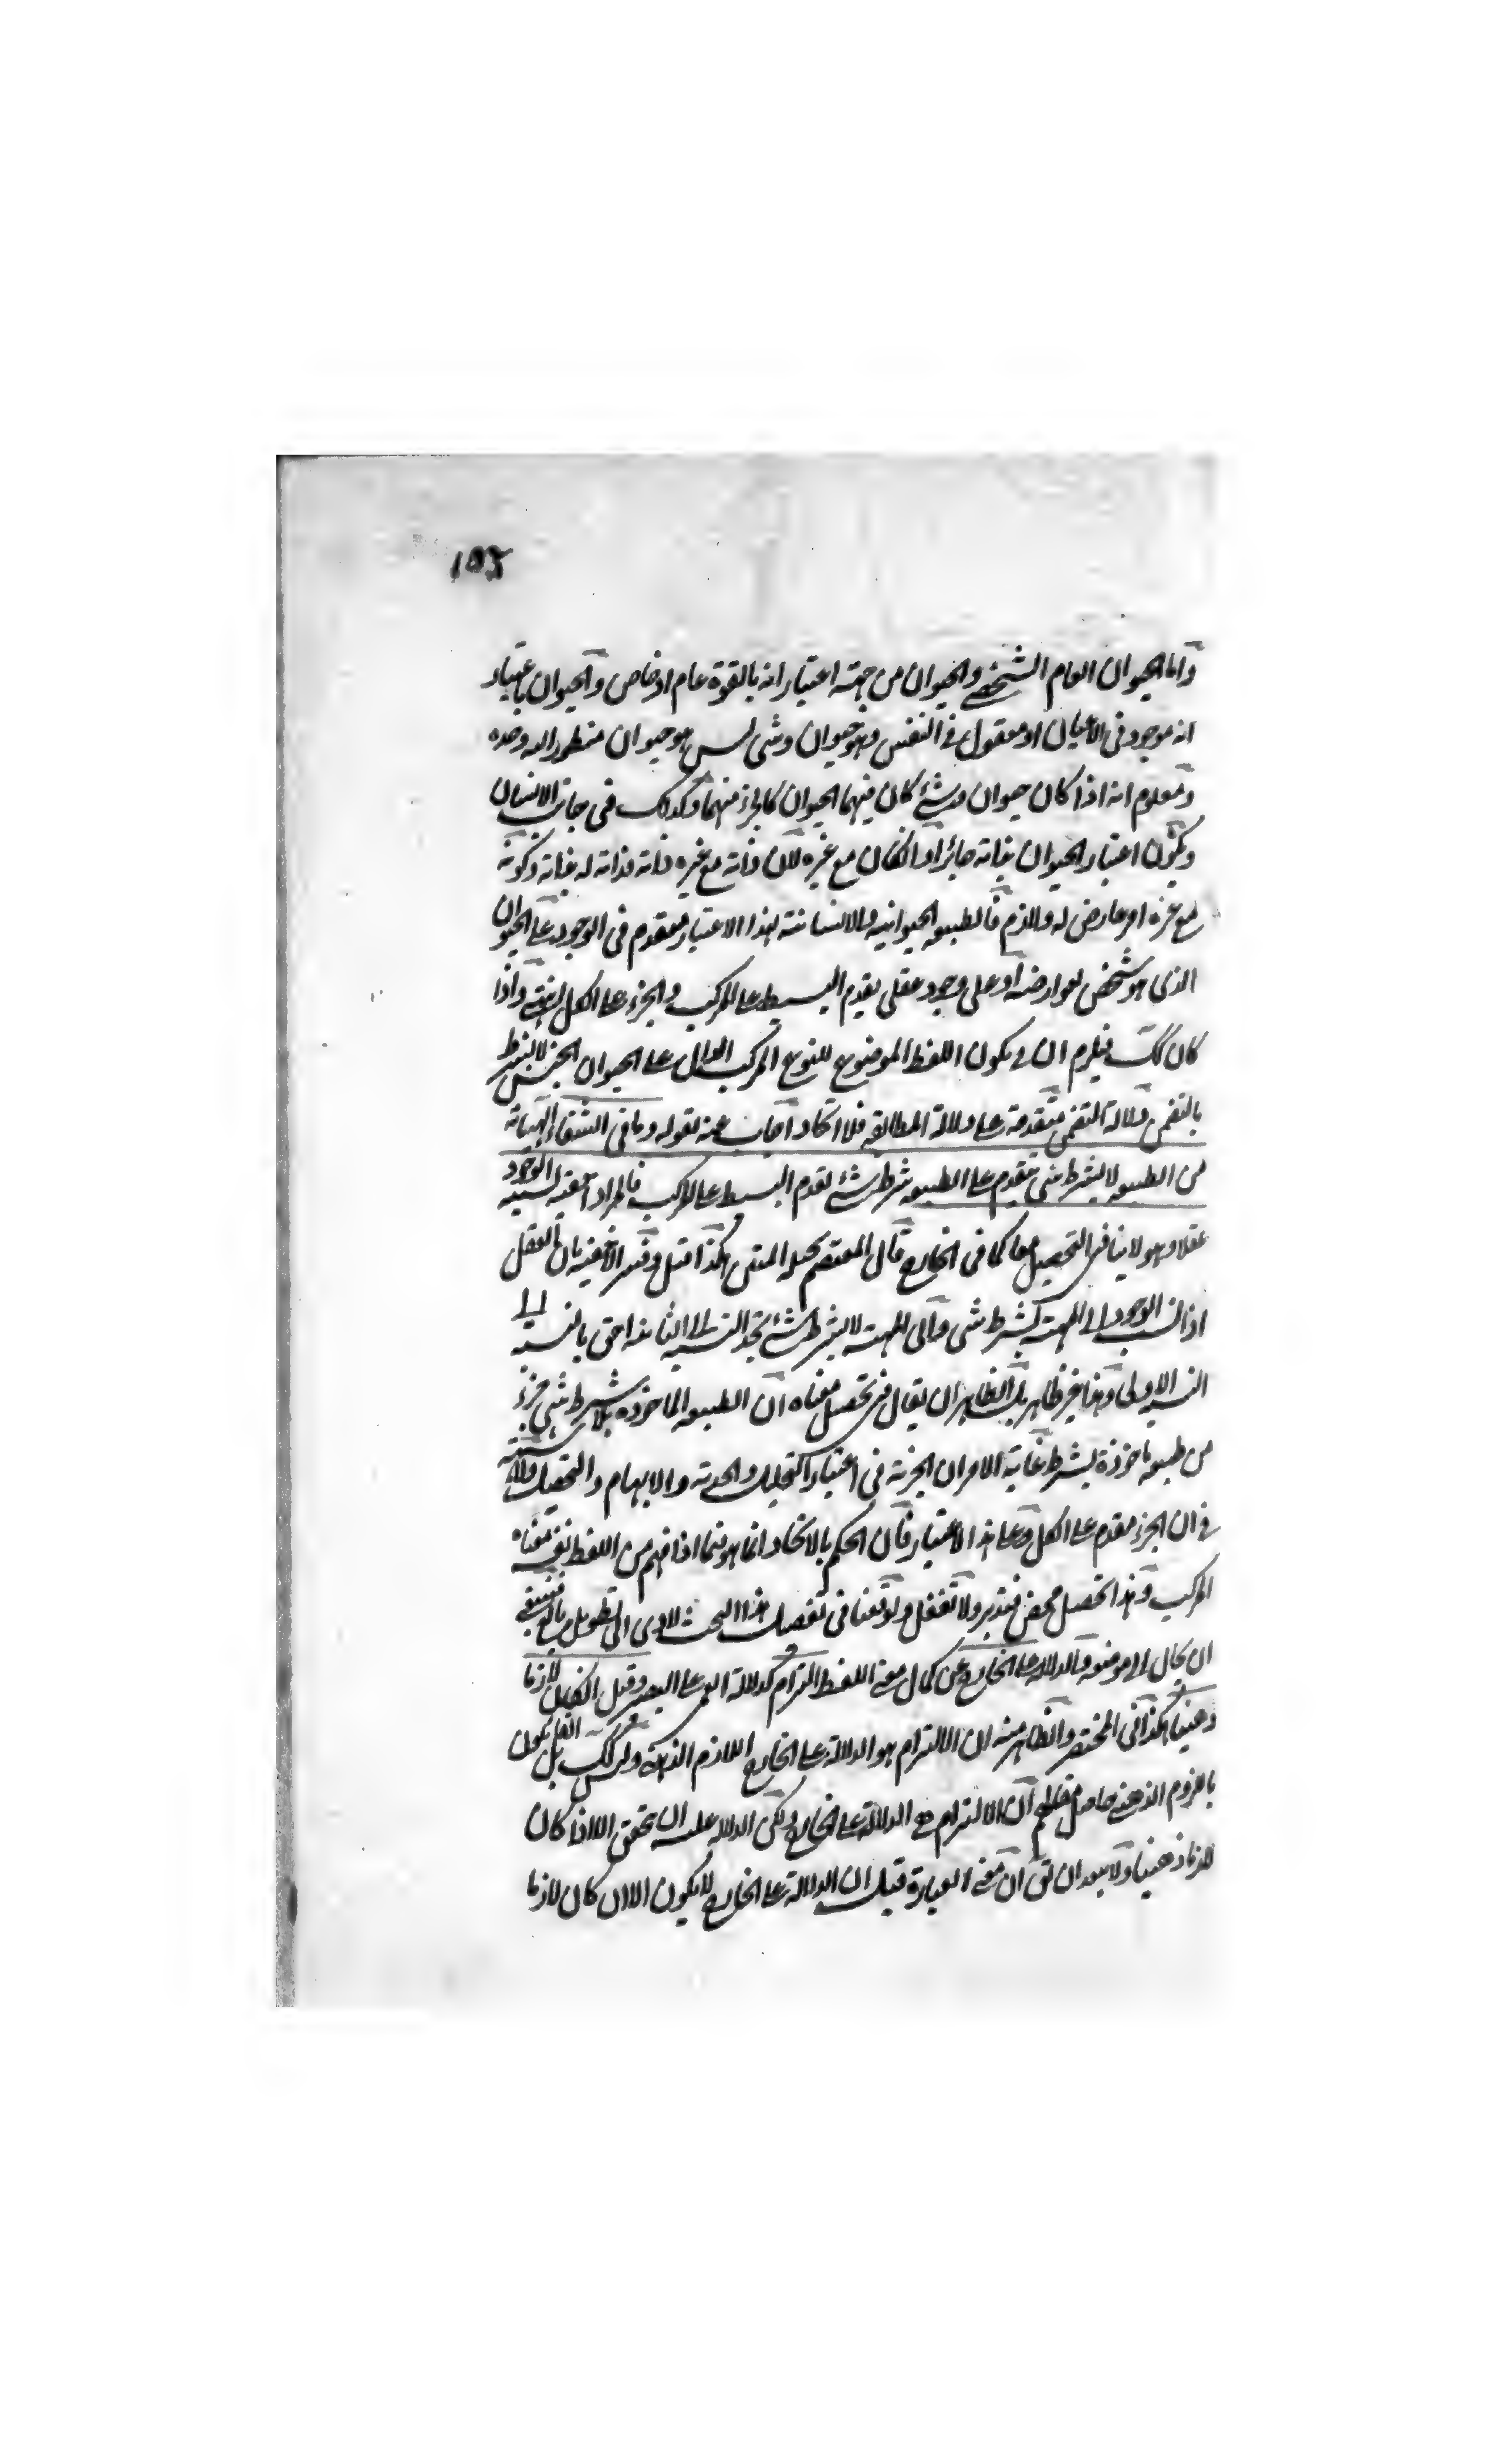 ١٥٢
واما الحيوان العام الشخصي والحيوان من جهة اعتبار انه بالقوة عام او خاص والحيوان باعتبار
انه موجود في الاعيان او معقول في النفس وهو حيوان وشي ليس هو حيوان منظور اليه وحده
ومعلوم انه اذا كان حيوان وشيء كان فيهما الحيوان كالجزء منهما وكذلك في جانب الانسان
ويكون اعتبار الحيوان بذاته جائزا وان كان مع غيره لان ذاته مع غيره ذاته فذاته له بذاته وكونه
مع غيره امر عارض له ولازم فالطبيعه الحيوانيه والانسانية بهذا الاعتبار متقدم في الوجود على الحيوان
الذي هو شخص بعوارضه او على وجود عقلي تقدم البسيط على المركب والجزء على الكل انتهى واذا
كان كك فيلزم ان يكون اللفظ الموضوع للنوع المركب الدال على الحيوان الجنس لا بشرط
بالتضمن دلالة التضمن متقدمة على دلالة المطابقه فلا اتحاد اجاب عنه بقوله وما في الشفاء الهياته
من الطبيعه لا بشرط شي متقدم على الطبيعه بشرط شيء تقدم البسيط على المركب فالمراد احقية نسبية الوجود
عقلا وهو لا ينافي التحصيل معا كما في الخارج قال المعتصم بحبله المتين هكذا قيل وفسر الاحقيه بان العقل
اذا نسب الوجود الى المهية بشرط شي والى المهية لا بشرط شيء تجد النسبة الى الثانية احق بالنسبة الى
النسبة الاولى وهذا غير ظاهر بل الظاهر ان يقال في تحصيل معناه ان الطبيعه الماخوذه بلا شرط شي جزء
من طبيعه ماخوذة بشرط غاية الامر ان الجزئية في اعتبار التحليل والابهام والتحصيل ولا شبهة
في ان الجزء مقدم على الكل وعلى هذا الاعتبار فان الحكم بالاتحاد انما هو فيما اذا فهم من اللفظ نفس معناه
المركب وهذا تحصيل محض فتدبر ولا تغفل ولو وقعنا في تفصيل هذا البحث لادى الى تطويل بالغ فينبغي
ان يحال الى موضعه والدلالة على الخارج عن كمال معنى اللفظ التزام كدلالة العمى على البصر وقيل ان كان لازما
ذهنيا هكذا في المختصر والظاهر منه ان الالتزام هو الدلالة على الخارج اللازم الذهني وليس كك بل القائل يكون
باللزوم الذهني حاصل مقالهم ان الالتزام هي الدلالة على الخارج ولكن الدلالة عليه ان تحقق الا اذا كان
لازما ذهنيا ولا يبعد ان يق ان معنى العبارة قيل ان الدلالة على الخارج لا يكون الا ان كان لازما